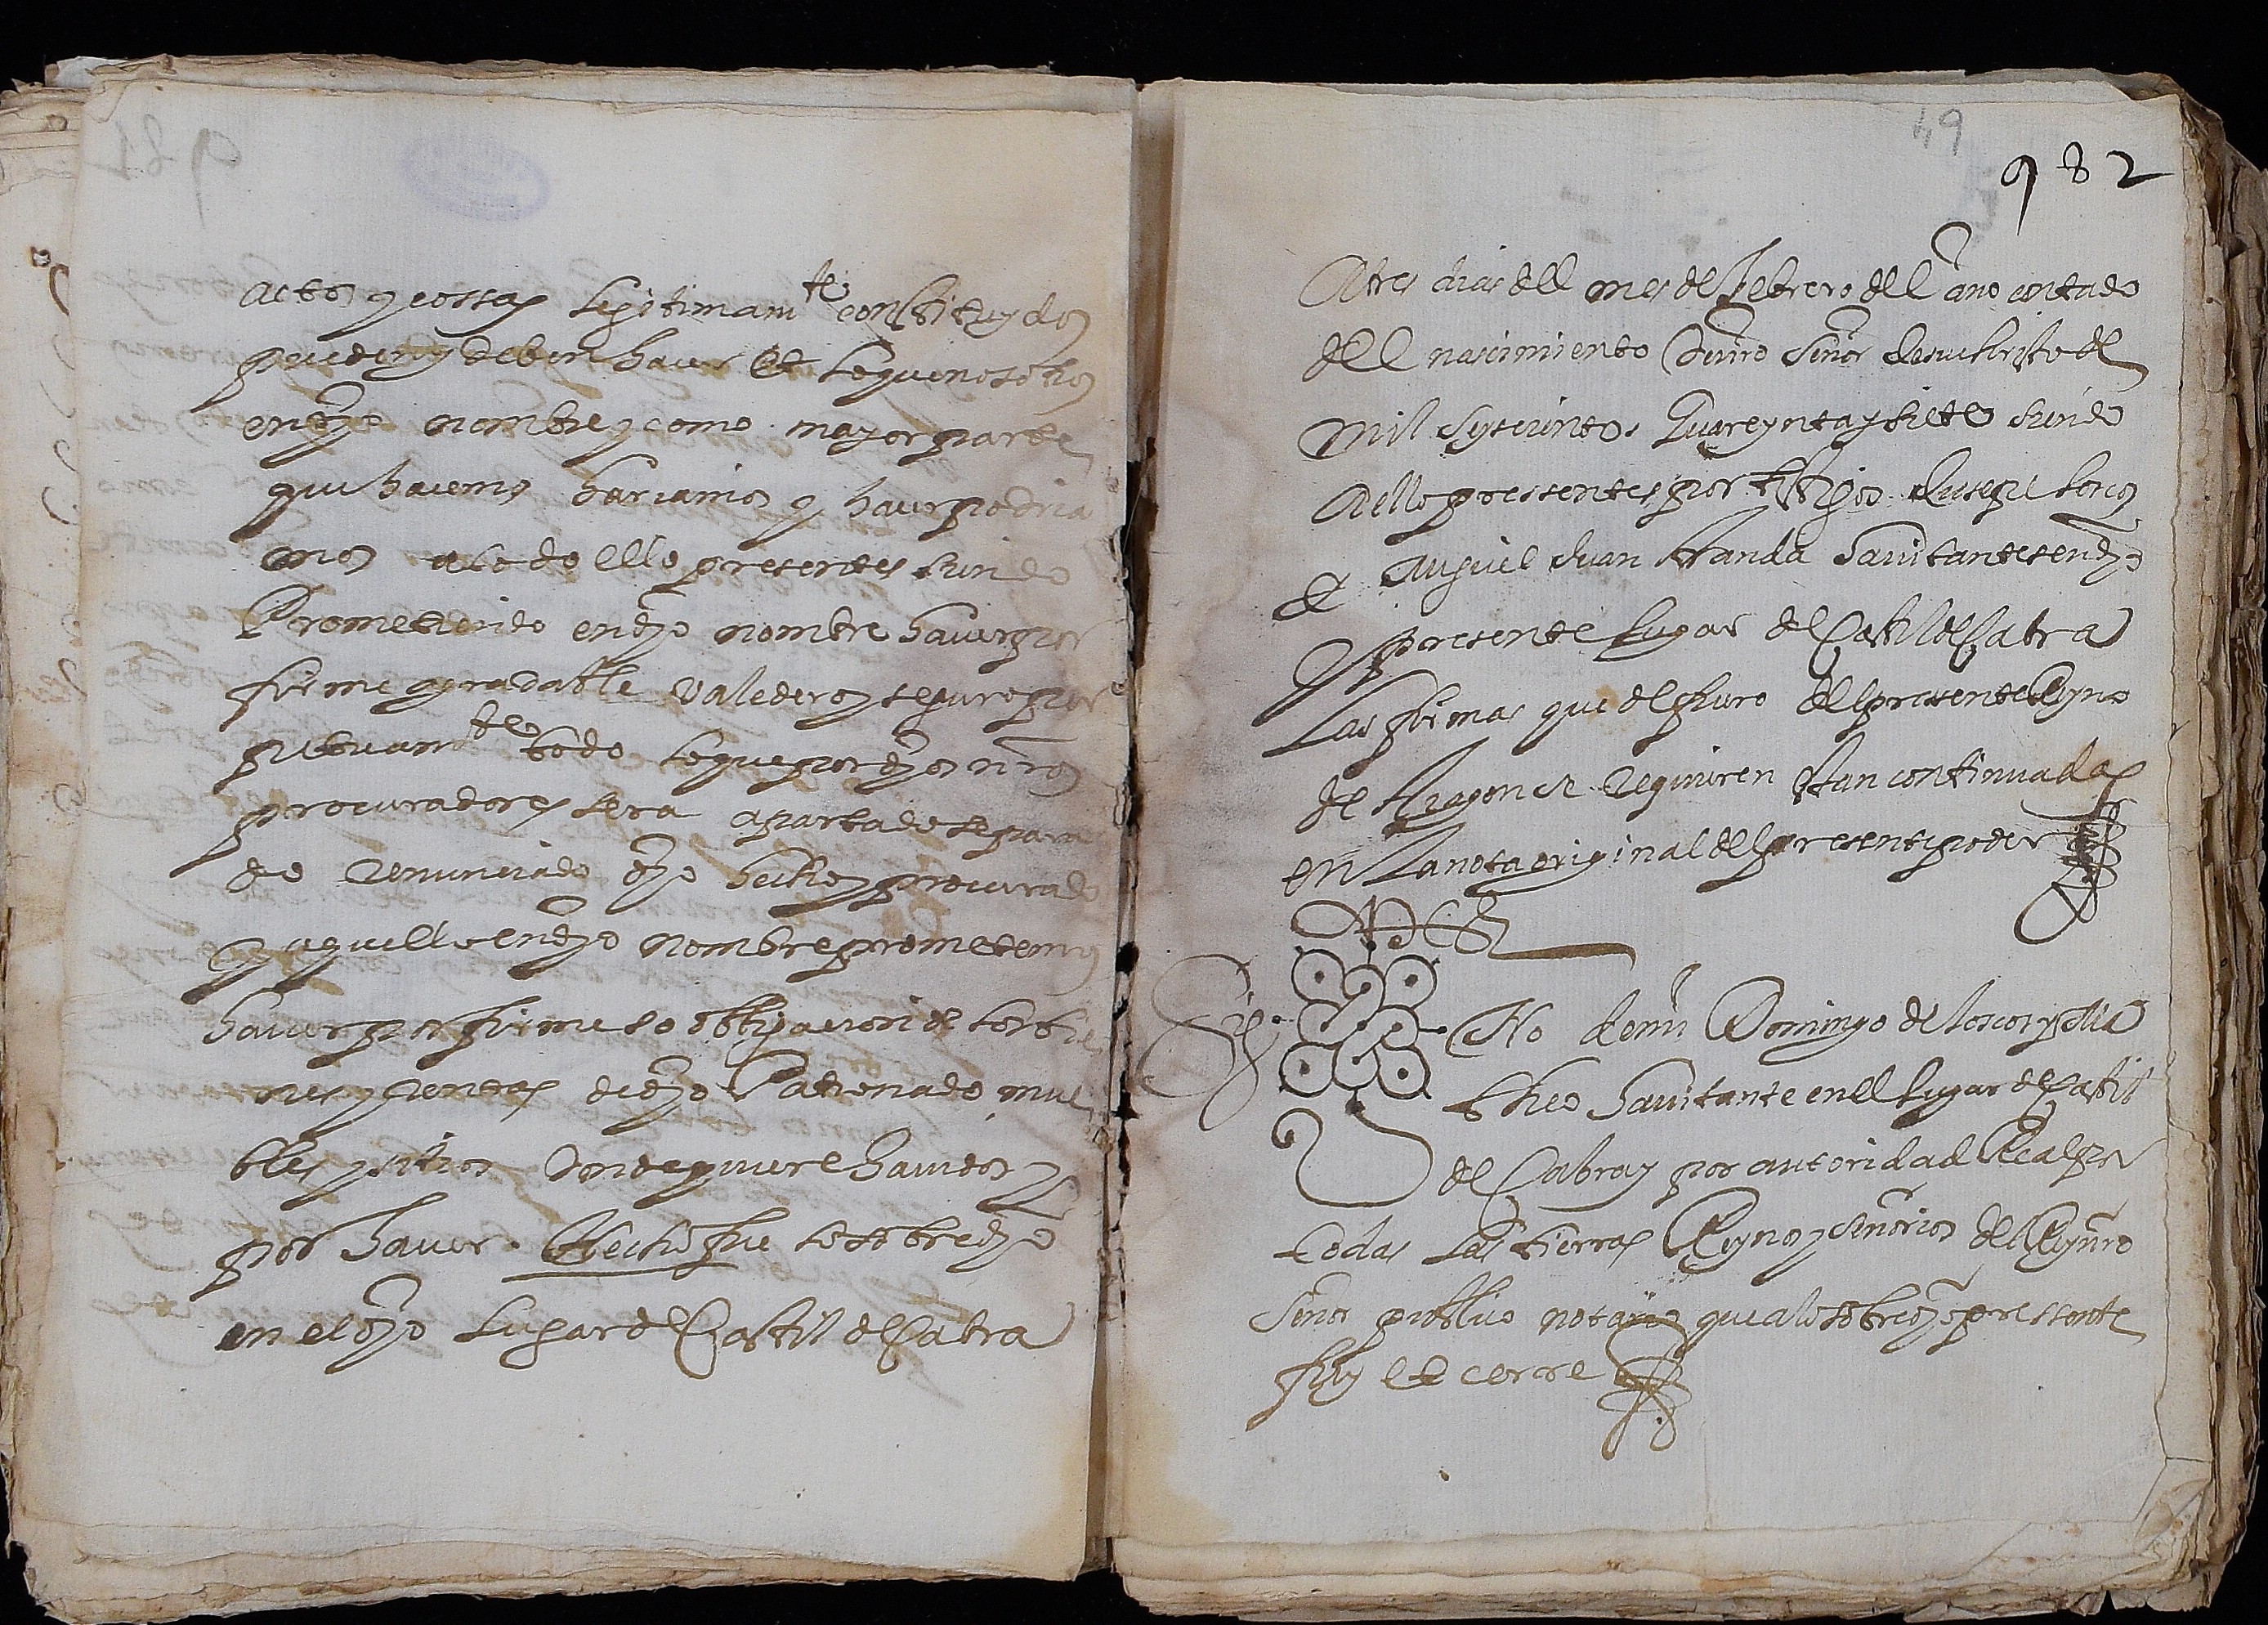 actos y cossas legitimam.te constituydos
pueden y deben hacer et lo que nosotros
en dho nombre y como mayor parte
que hacemos hariamos y hacer podria
mos a todo ello presentes siendo
Prometiendo en dho nombre haver por
firme agradable valedero y seguro per
petuam.te todo lo que por dhos nros
procuradores sera apartado separa
do renunciado dho hecho y procurado
y aquello en dho nombre prometemos
haver por firme so obligacion de los bie
nes y rentas de dho Patronado mue
bles y sitios donde quiere havidos y
por haver. Hecho fue lo sobre dho
en el dho Lugar de Castil de Cabra
49
982
A tres dias del mes de Febrero del año contado
del nascimiento de nro Señor Jesuchristo de
mil syscientos Quareynta y siete siendo
a ello pressentes por testigos Jusepe Loscos
et Miguel Juan Aranda havitantes en dho
y presente Lugar de Castil de Cabra
Las firmas que de fuero del presente Reyno
de Aragon se requieren estan continuadas
en la nota original del presente poder
Sig no de mi Domingo de Loscos y Ma
theo havitante en el Lugar de Castil
de Cabra y por autoridad Real por
todas las tierras Reynos y señorios del Rey nro
Señor publico notario que a lo sobre dho pressente
fuy et cerre